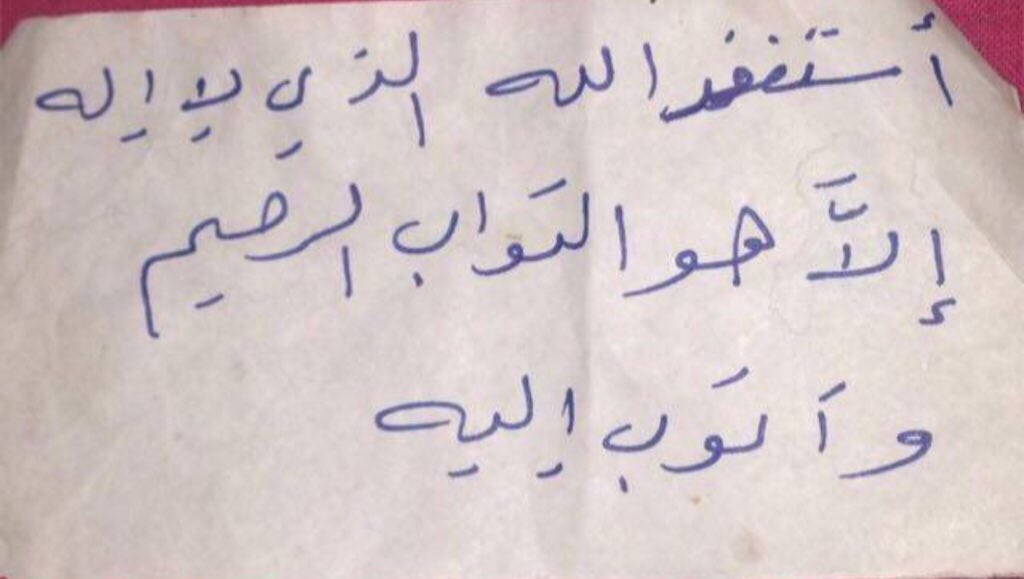 أستغفر الله الذي لا إله
إلاَّ هو التواب الرحيم
و أتوب إليه